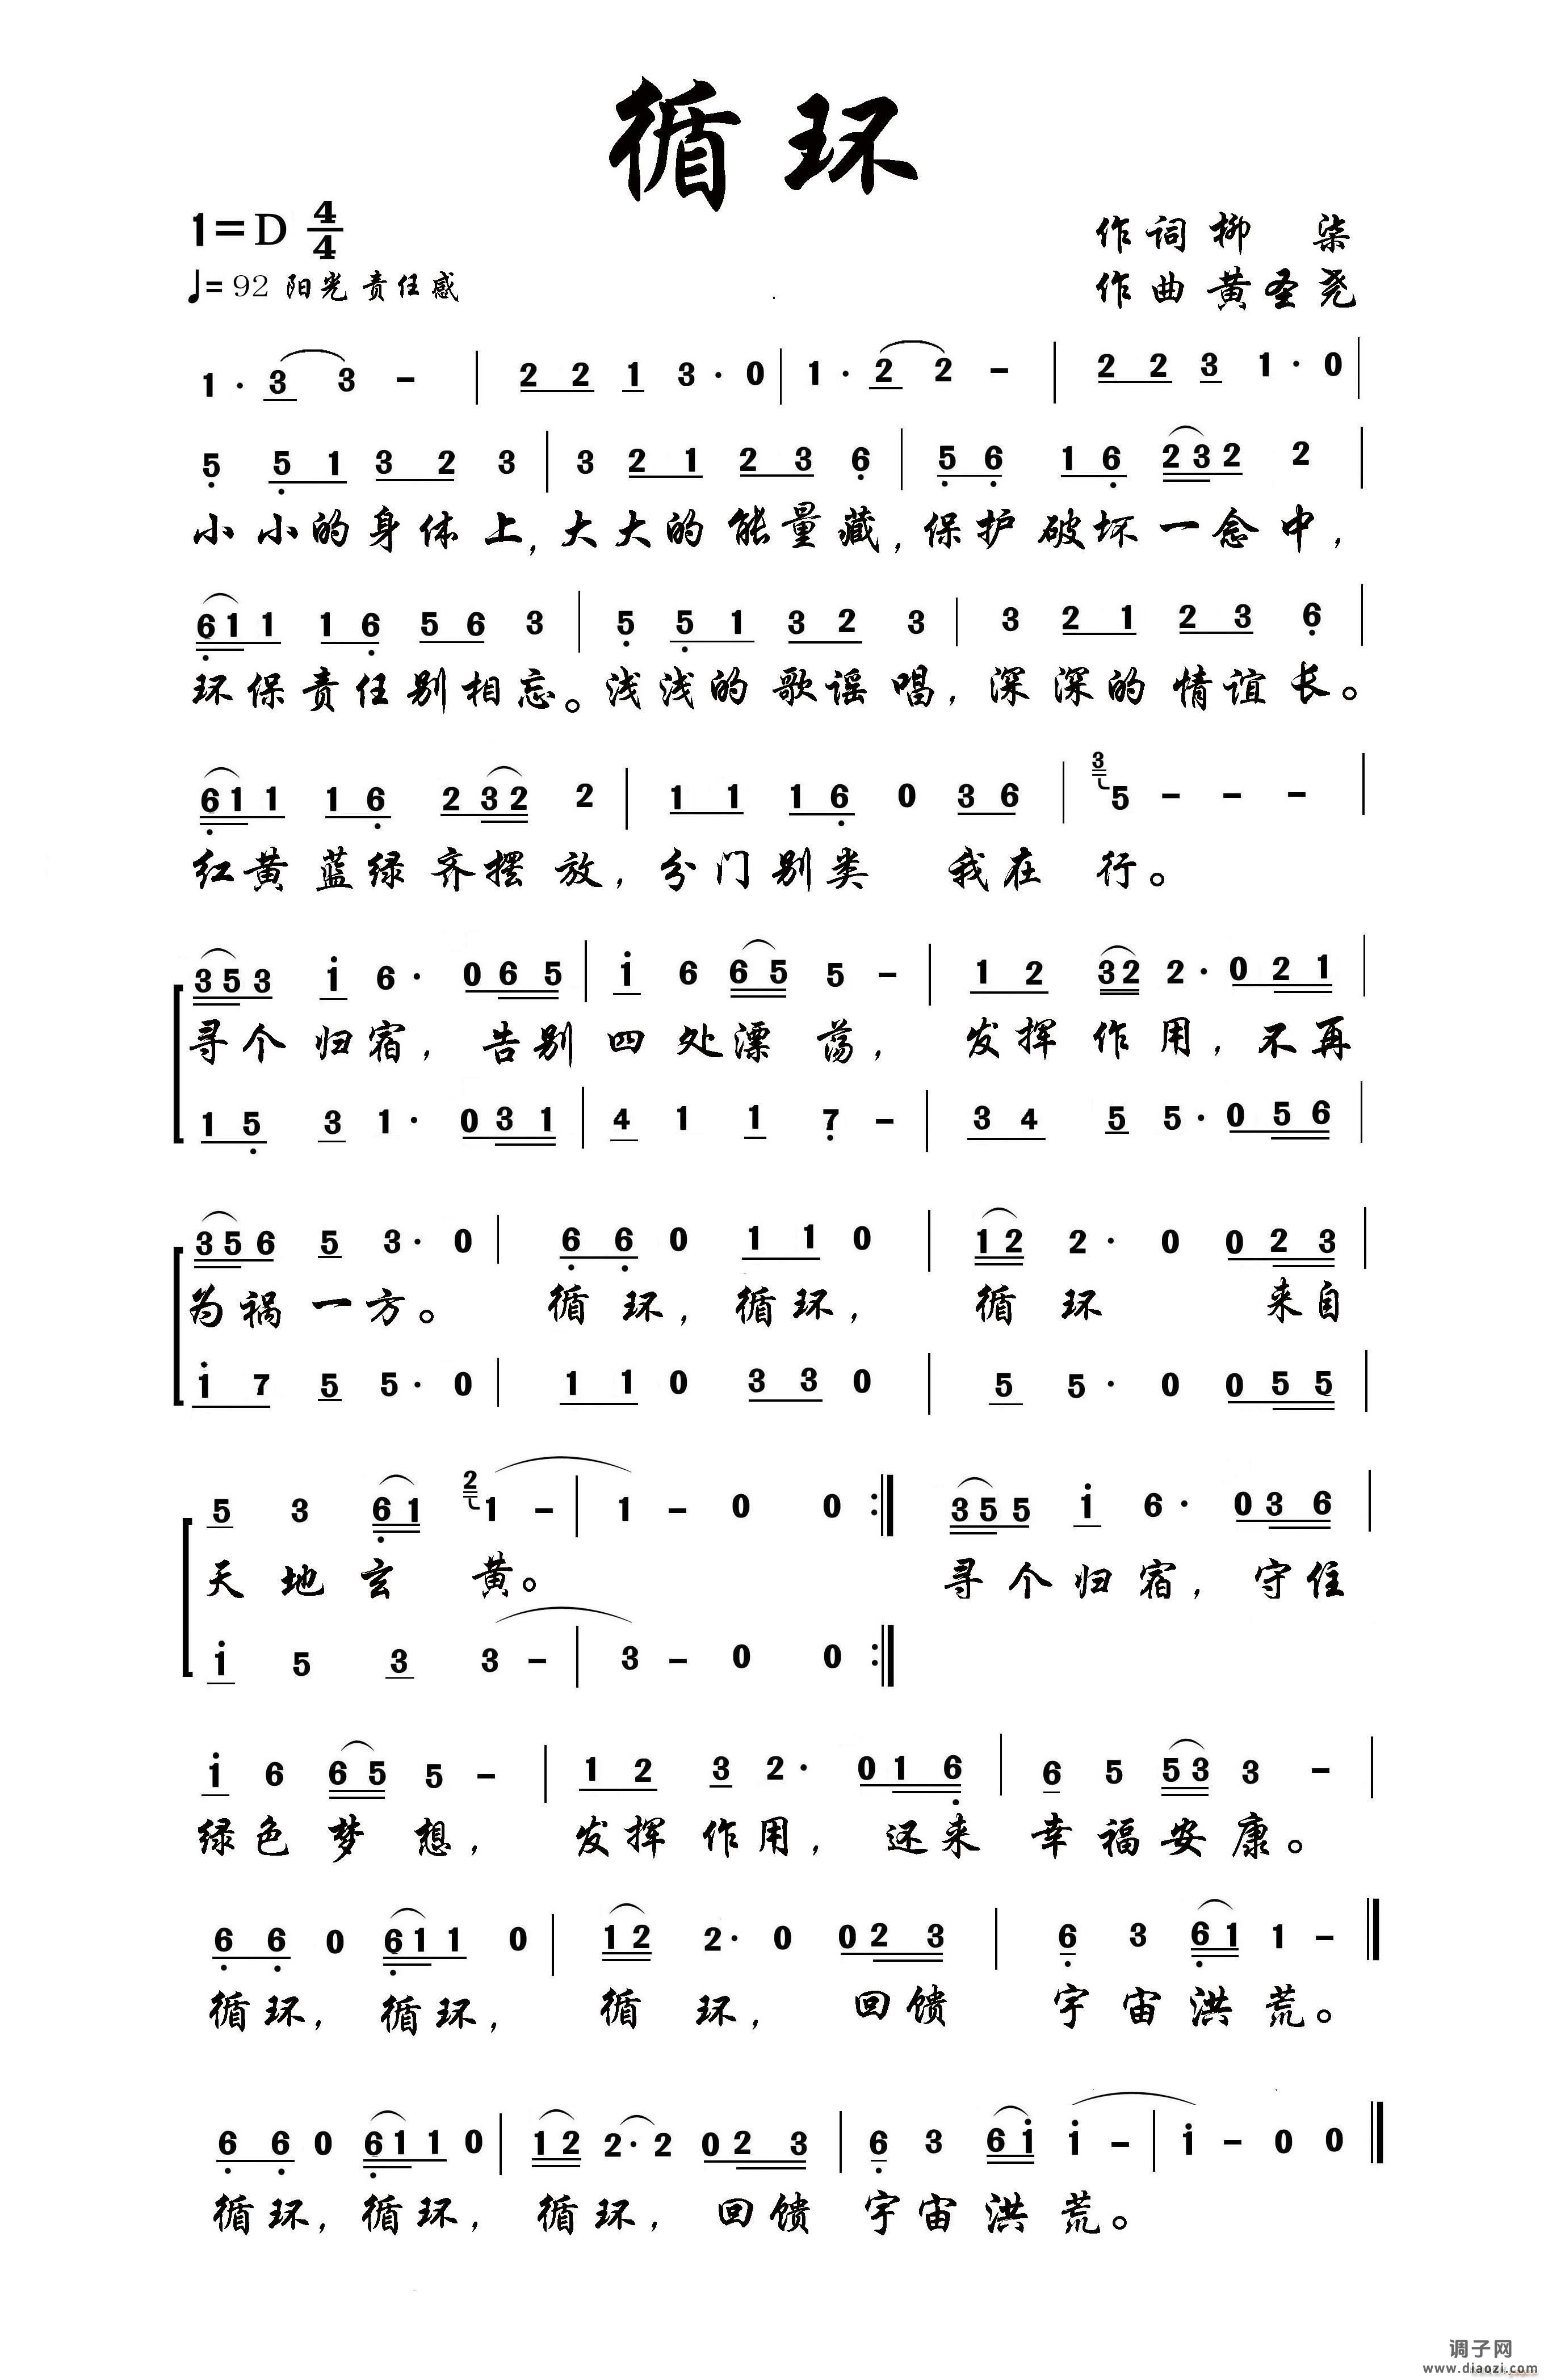 循环
1=D 4/4
作词 柳 柒
♩=92 阳光 责任感
作曲 黄圣尧
1· 3 3 - | 2 2 1 3· 0 | 1· 2 2 - | 2 2 3 1· 0 |
5 5 1 3 2 3 | 3 2 1 2 3 6 | 5 6 1 6 2 3 2 2 |
小小的身体上,大大的能量藏,保护破坏一念中,
6 1 1 1 6 5 6 3 | 5 5 1 3 2 3 | 3 2 1 2 3 6 |
环保责任别相忘。浅浅的歌谣唱,深深的情谊长。
6 1 1 1 6 2 3 2 2 | 1 1 1 6 0 3 6 | 3 5 - - - |
红黄蓝绿齐摆放,分门别类 我在行。
3 5 3 1 6· 0 6 5 | 1 6 6 5 5 - | 1 2 3 2 2· 0 2 1 |
寻个归宿,告别四处漂荡,发挥作用,不再
1 5 3 1· 0 3 1 | 4 1 1 7 - | 3 4 5 5· 0 5 6 |
3 5 6 5 3· 0 | 6 6 0 1 1 0 | 1 2 2· 0 0 2 3 |
为祸一方。循环,循环,循环 来自
1 7 5 5· 0 | 1 1 0 3 3 0 | 5 5· 0 0 5 5 |
5 3 6 1 2 1 - | 1 - 0 0 :| 3 5 5 1 6· 0 3 6 |
天地玄黄。 寻个归宿,守住
1 5 3 3 - | 3 - 0 0 :|
1 6 6 5 5 - | 1 2 3 2· 0 1 6 | 6 5 5 3 3 - |
绿色梦想,发挥作用,还来幸福安康。
6 6 0 6 1 1 0 | 1 2 2· 0 0 2 3 | 6 3 6 1 1 - ‖
循环,循环,循环,回馈宇宙洪荒。
6 6 0 6 1 1 0 | 1 2 2· 2 0 2 3 | 6 3 6 1 1 - | 1 - 0 0 ‖
循环,循环,循环,回馈宇宙洪荒。
调子网
www.diaozi.com